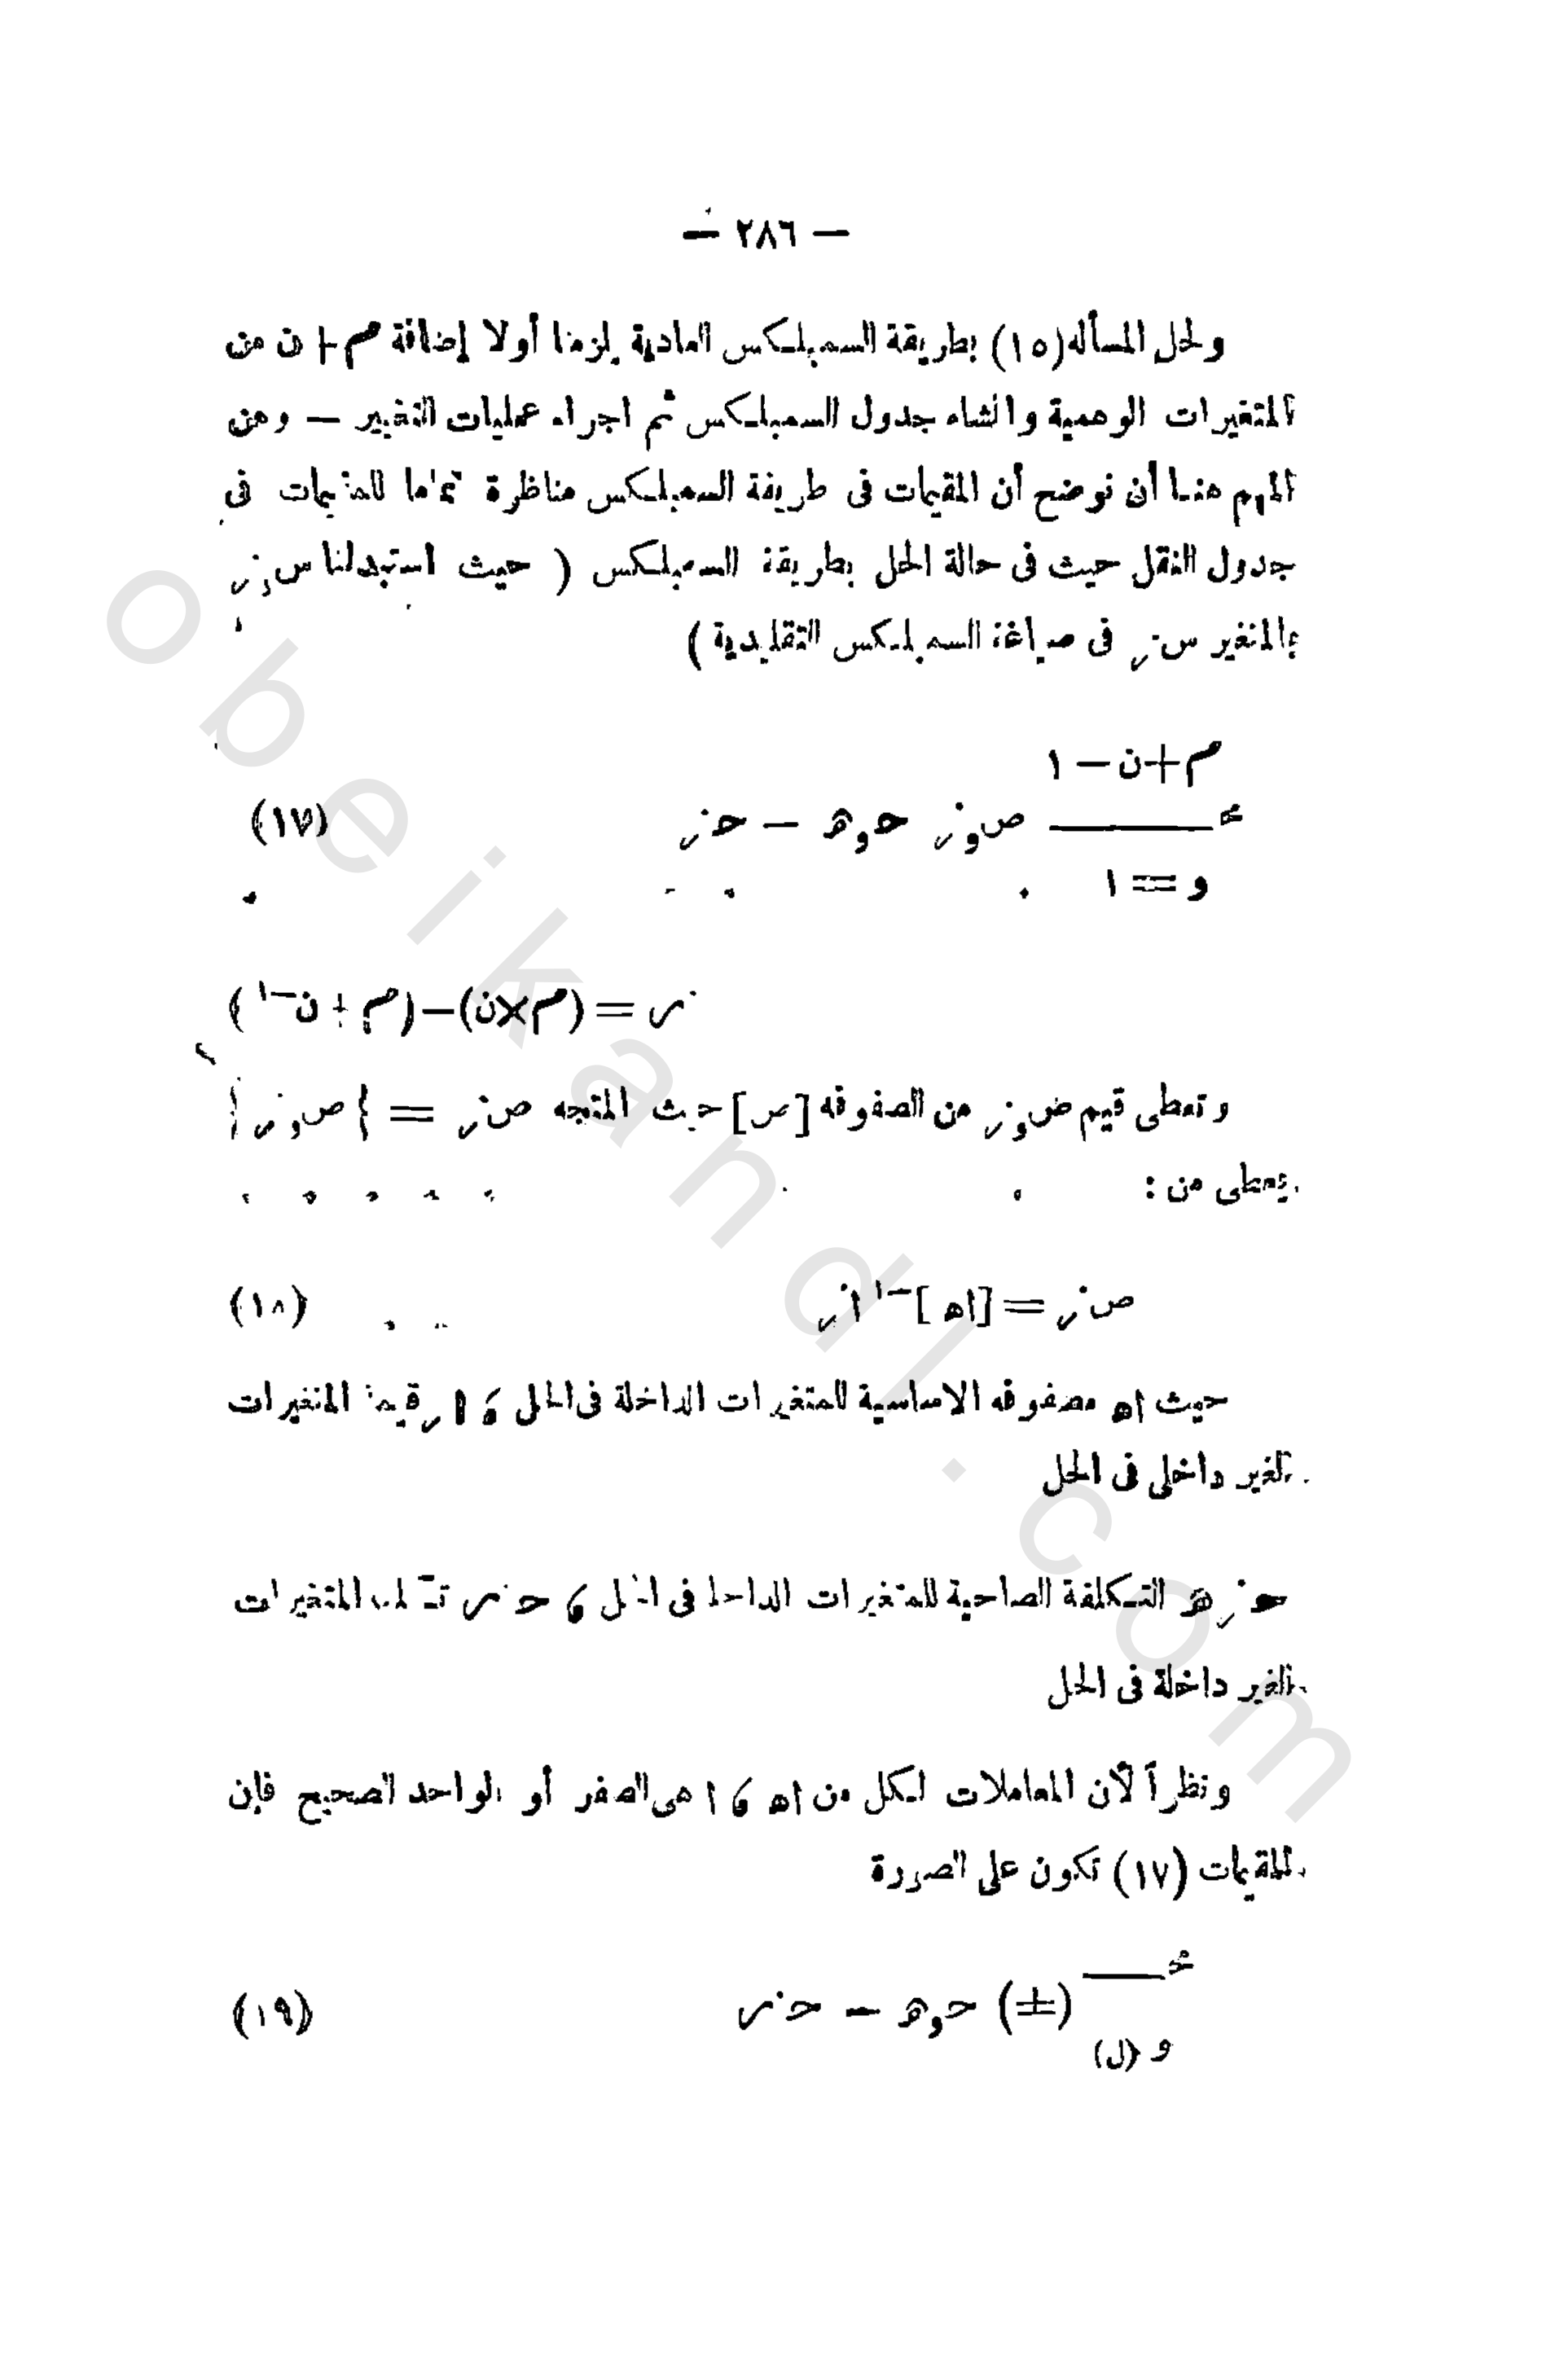 — ٢٨٦ —
ولحل المسأله (١٥) بطريقة السمبلـكس العادية يلزمنا أولا إضافة م + ن من
المتغيرات الوهمية وانشاء جدول السمبلـكس ثم اجراء عمليات التغيير — ومن
المهم هنـا أن نوضح أن المقيمات فى طريقة السمبلـكس مناظرة تماما للمقيمات فى
جدول النقل حيث فى حالة الحل بطريقة السمبلـكس ( حيث استبدلنا س
بالمتغير س فى صياغة السمبلـكس التقليدية )
م+ن — ١
محـــــ ص حـ — حـ (١٧)
و = ١
ز = (م×ن)—(م + ن—١ )
وتعطى قيم من الصفوفه [ص] حيث المتجه ص = { ص }
يعطى من :
ص = [اه ]—١ (١٨)
حيث اه مصفوفه الاساسية للمتغيرات الداخلة فى الحل ، قيمة المتغيرات
الغير داخلى فى الحل
التـكلفة الصاحية للمتغيرات فى الحل ، المتغيرات
الغير داخلة فى الحل
ونظراً لأن المعاملات لـكل من اه ، ا هى الصفر أو الواحد الصحيح فإن
المقيمات (١٧) تكون على الصورة
محـــــ (±) حـ — حـ (١٩)
و (ل)
obeikandl.com